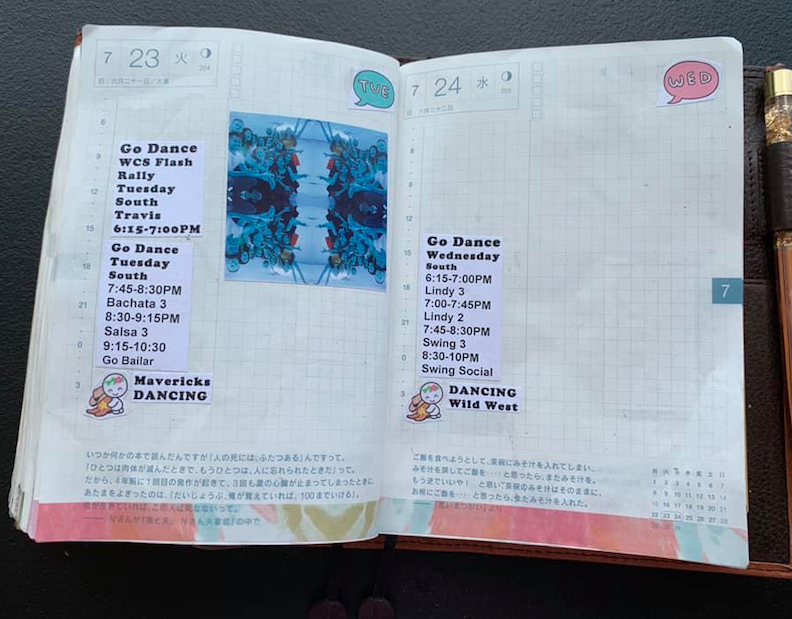 7 23 火
204
旧/六月二十一日/大暑
TUE
6
9
12
15
18
21
0
3
Go Dance
WCS Flash
Rally
Tuesday
South
Travis
6:15-7:00PM
Go Dance
Tuesday
South
7:45-8:30PM
Bachata 3
8:30-9:15PM
Salsa 3
9:15-10:30
Go Bailar
Mavericks
DANCING
いつか何かの本で読んだんですが「人の死には、ふたつある」んですって。
「ひとつは肉体が滅んだときで、もうひとつは、人に忘れられたときだ」って。
だから、4年前に1回目の発作が起きて、3回も妻の心臓が止まってしまったときに
あたまをよぎったのは、「だいじょうぶ、俺が覚えていれば、100までいける」。
俺が生きていれば、この人は死なないって。
7 24 水
205
旧/六月二十二日
WED
6
9
12
15
18
21
0
3
Go Dance
Wednesday
South
6:15-7:00PM
Lindy 3
7:00-7:45PM
Lindy 2
7:45-8:30PM
Swing 3
8:30-10PM
Swing Social
DANCING
Wild West
7
ご飯を食べようとして、茶碗にみそ汁を入れてしまい、
みそ汁を戻してご飯を‥‥と思ったら、またみそ汁を。
もう逆でいいや！ と思い、茶碗のみそ汁はそのままに、
お椀にご飯を‥‥と思ったら、またみそ汁を入れた。
月 火 水 木 金 土 日
1 2 3 4 5 6 7
8 9 10 11 12 13 14
15 16 17 18 19 20 21
22 23 24 25 26 27 28
29 30 31